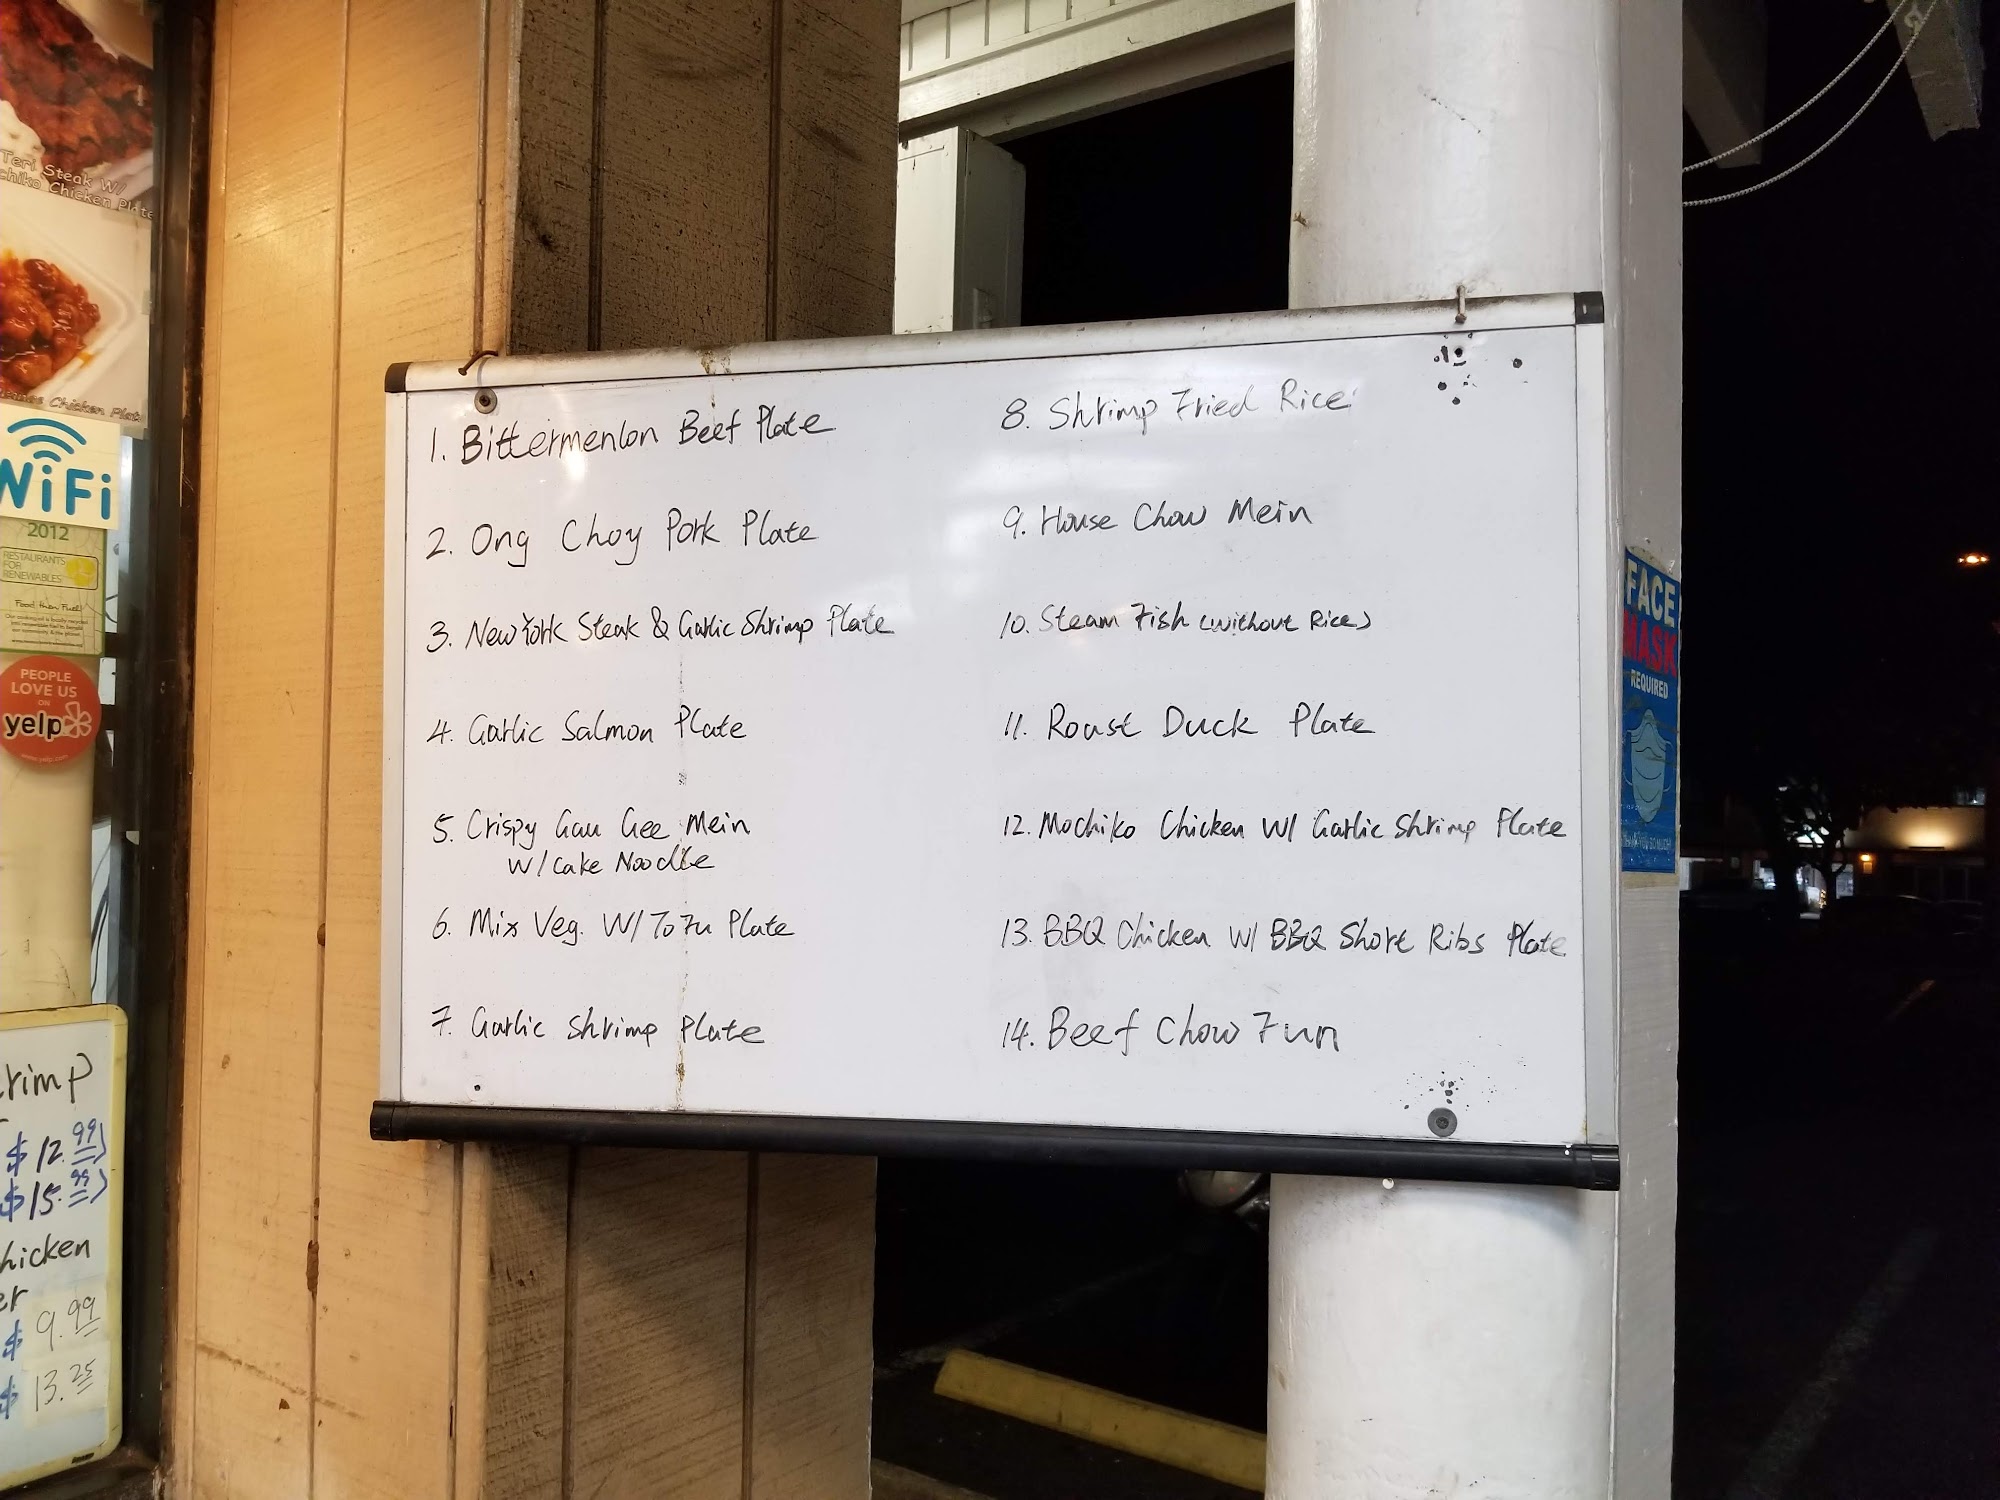 Teri Steak W/
chiko Chicken Plate
Chicken Plate
WiFi
2012
RESTAURANTS
FOR
RENEWABLES
Food then Fuel!
PEOPLE
LOVE US
ON
yelp
www.yelp.com
rimp
$12.99)
$15.99)
hicken
er
$9.99
$13.25
1. Bittermenlon Beef Plate
2. Ong Choy Pork Plate
3. New York Steak & Garlic Shrimp Plate
4. Garlic Salmon Plate
5. Crispy Gau Gee Mein
W/Cake Noodle
6. Mix Veg. W/ Tofu Plate
7. Garlic Shrimp Plate
8. Shrimp Fried Rice
9. House Chow Mein
10. Steam Fish (without Rice)
11. Roast Duck Plate
12. Mochiko Chicken W/ Garlic Shrimp Plate
13. BBQ Chicken W/ BBQ Short Ribs Plate
14. Beef Chow Fun
FACE
MASK
REQUIRED